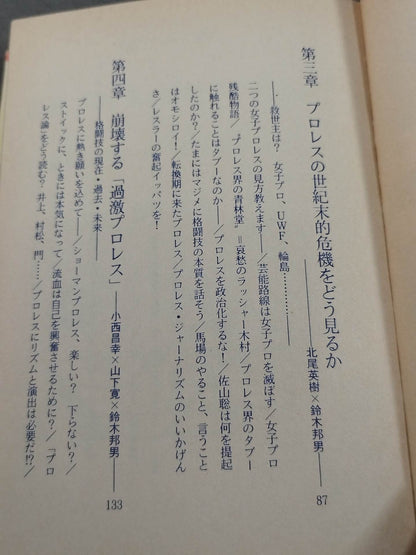 第三章 プロレスの世紀末的危機をどう見るか
――北尾英樹×鈴木邦男―― 87
――救世主は? 女子プロ、UWF、輪島…………
二つの女子プロレスの見方教えます――/芸能路線は女子プロを滅ぼす/女子プロ
残酷物語/『プロレス界の青林堂』=哀愁のラッシャー木村/プロレス界のタブー
に触れることはタブーなのか――/プロレスを政治化するな!/佐山聡は何を提起
したのか?/たまにはマジメに格闘技の本質を話そう/馬場のやること、言うこと
はオモシロイ!/転換期に来たプロレス/プロレス・ジャーナリズムのいいかげん
さ/レスラーの奮起イッパツを!
第四章 崩壊する「過激プロレス」――小西昌幸×山下寛×鈴木邦男―― 133
――格闘技の現在・過去・未来――
プロレスに熱き願いを込めて――/ショーマンプロレス、楽しい? 下らない?/
ストイックに、ときには本気になって/流血は自己を興奮させるために?/『プロ
レス論』をどう読む? 井上、村松、門……/プロレスにリズムと演出は必要だ!?/